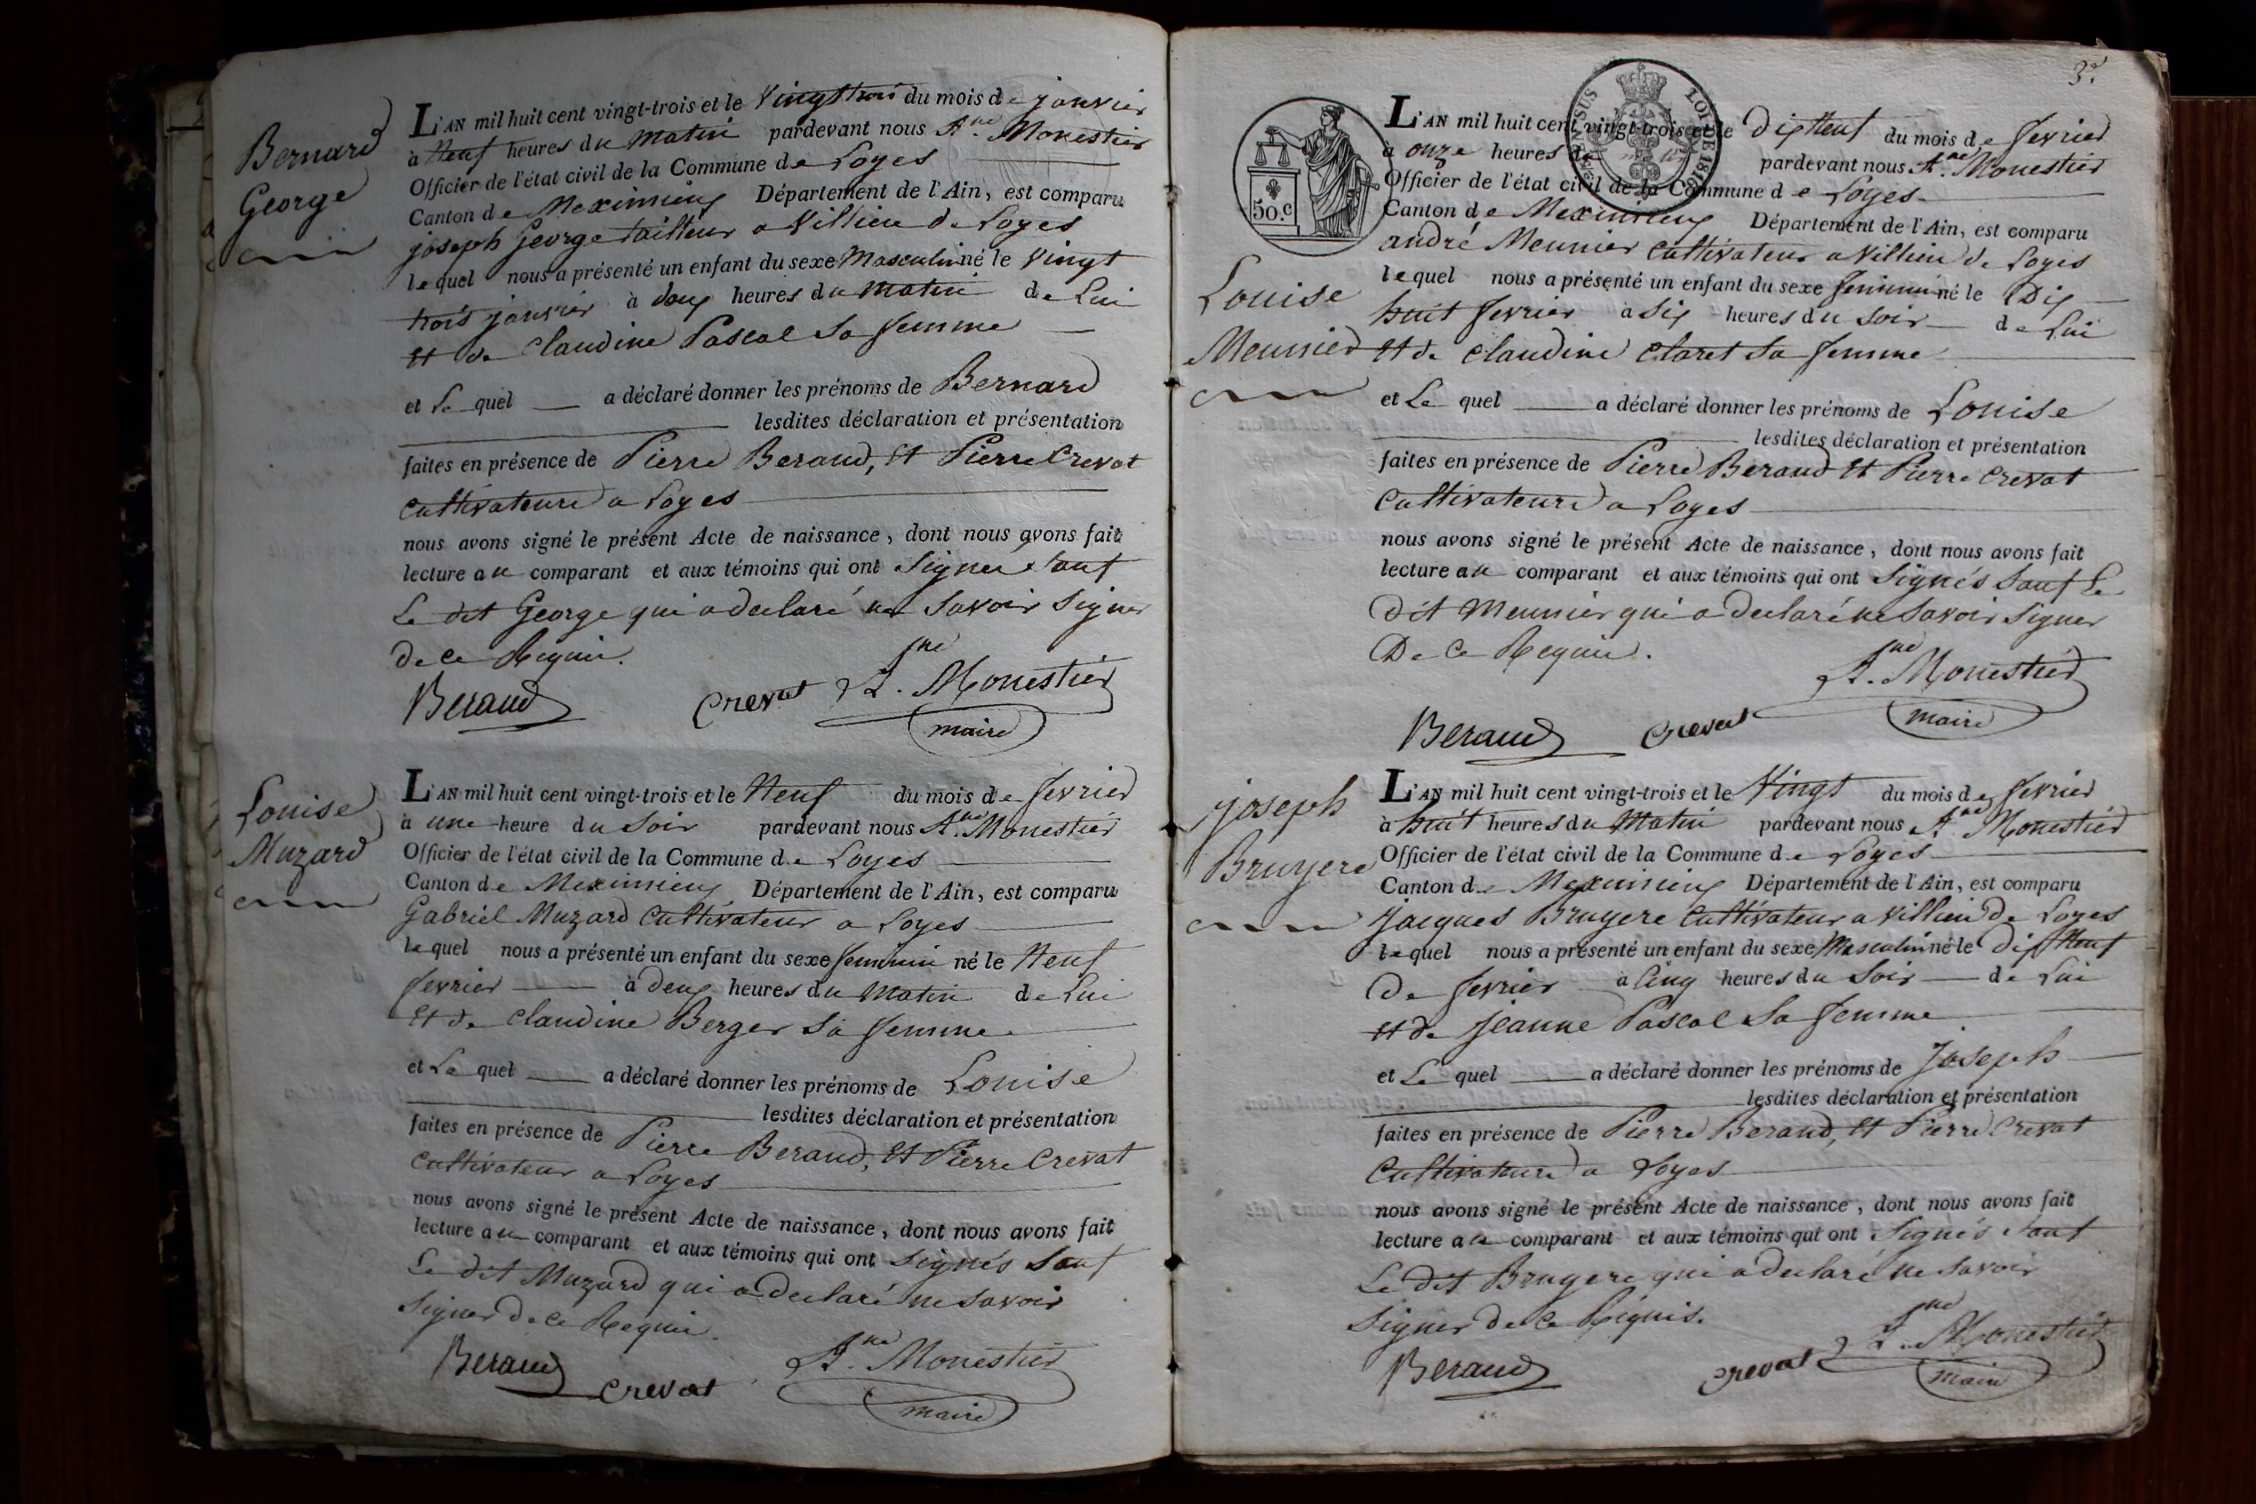 Bernard
George
L'AN mil huit cent vingt-trois et le Vingt trois du mois de janvier
à Neuf heures du Matin pardevant nous A.ne Monestier
Officier de l'état civil de la Commune de Loyes
Canton de Meximieux Département de l'Ain, est comparu
joseph George tailleur a Villieu de Loyes
lequel nous a présenté un enfant du sexe Masculin né le Vingt
trois janvier à deux heures du Matin de Lui
et de Claudine Pascal Sa femme
et Le quel a déclaré donner les prénoms de Bernard
lesdites déclaration et présentation
faites en présence de Pierre Beraud, et Pierre Crevat
Cultivateurs a Loyes
nous avons signé le présent Acte de naissance, dont nous avons fait
lecture au comparant et aux témoins qui ont Signer Sauf
Le dit George qui a declaré ne Savoir Signer
de ce Requis.
Beraud Crevat A.ne Monestier
maire
Louise
Muzard
L'AN mil huit cent vingt-trois et le Neuf du mois de fevrier
à une heure du Soir pardevant nous A.ne Monestier
Officier de l'état civil de la Commune de Loyes
Canton de Meximieux Département de l'Ain, est comparu
Gabriel Muzard Cultivateur a Loyes
lequel nous a présenté un enfant du sexe feminin né le Neuf
fevrier à deux heures du Matin de Lui
et de Claudine Berger Sa femme
et Le quel a déclaré donner les prénoms de Louise
lesdites déclaration et présentation
faites en présence de Pierre Beraud, et Pierre Crevat
Cultivateur a Loyes
nous avons signé le présent Acte de naissance, dont nous avons fait
lecture au comparant et aux témoins qui ont Signés Sauf
Le dit Muzard qui a declaré ne Savoir
Signer de ce Requis.
Beraud Crevat A.ne Monestier
maire
3.
50.c
LOI DE 1816
Louise
Meunier
L'AN mil huit cent vingt-trois et le Dix Neuf du mois de fevrier
à onze heures du matin pardevant nous A.ne Monestier
Officier de l'état civil de la Commune de Loyes
Canton de Meximieux Département de l'Ain, est comparu
andré Meunier Cultivateur a Villieu de Loyes
lequel nous a présenté un enfant du sexe feminin né le Dix
huit fevrier à Six heures du Soir de Lui
et de Claudine Claret Sa femme
et Le quel a déclaré donner les prénoms de Louise
lesdites déclaration et présentation
faites en présence de Pierre Beraud et Pierre Crevat
Cultivateurs a Loyes
nous avons signé le présent Acte de naissance, dont nous avons fait
lecture au comparant et aux témoins qui ont Signés Sauf Le
Dit Meunier qui a declaré ne Savoir Signer
De Ce Requis.
Beraud Crevat A.ne Monestier
maire
joseph
Bruyere
L'AN mil huit cent vingt-trois et le Vingt du mois de fevrier
à huit heures du Matin pardevant nous A.ne Monestier
Officier de l'état civil de la Commune de Loyes
Canton de Meximieux Département de l'Ain, est comparu
jacques Bruyere Cultivateur a Villieu de Loyes
lequel nous a présenté un enfant du sexe Masculin né le Dix Neuf
De fevrier à Cinq heures du Soir de Lui
et de Jeanne Pascal Sa femme
et Le quel a déclaré donner les prénoms de Joseph
lesdites déclaration et présentation
faites en présence de Pierre Beraud, et Pierre Crevat
Cultivateurs a Loyes
nous avons signé le présent Acte de naissance, dont nous avons fait
lecture au comparant et aux témoins qui ont Signés Sauf
Le dit Bruyere qui a declaré ne Savoir
Signer de Ce Requis.
Beraud Crevat A.ne Monestier
maire